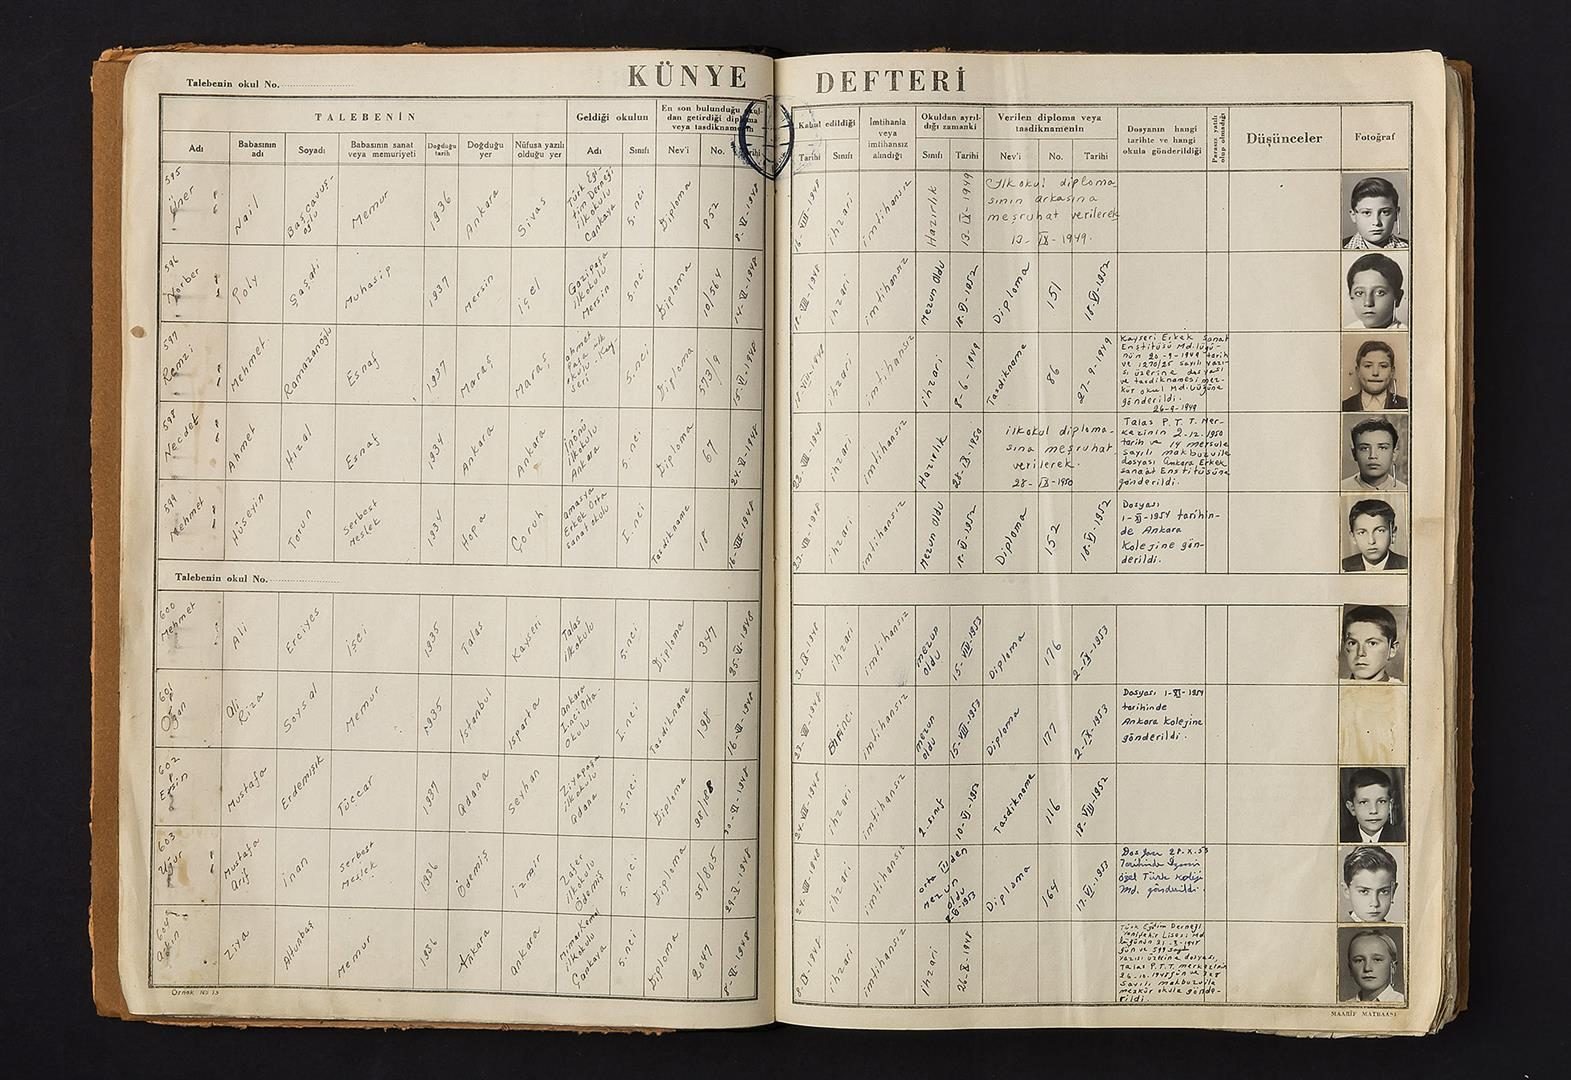 KÜNYE DEFTERİ
Talebenin okul No.
TALEBENİN
Geldiği okulun
En son bulunduğu okul-
dan getirdiği diploma
veya tasdiknamenin
Kabul edildiği
İmtihanla
veya
imtihansız
alındığı
Okuldan ayrıl-
dığı zamanki
Verilen diploma veya
tasdiknamenin
Dosyanın hangi
tarihle ve hangi
okula gönderildiği
Parasız yatılı
olup olmadığı
Düşünceler
Fotoğraf
Adı
Babasının
adı
Soyadı
Babasının sanat
veya memuriyeti
Doğduğu
tarih
Doğduğu
yer
Nüfusa yazılı
olduğu yer
Adı
Sınıfı
Nev'i
No.
Tarihi
Tarihi
Sınıfı
Sınıfı
Tarihi
Nev'i
No.
Tarihi
595
Üner
Nail
Başçavuş-
oğlu
Memur
1936
Ankara
Sivas
Türk Eği-
tim Derneği
ilkokulu
Çankaya
5.nci
Diploma
852
8-VI-1948
16-VIII-1948
ihzari
imtihansız
Hazırlık
13-IX-1949
İlkokul diploma
sının arkasına
meşruhat verilerek
13-IX-1949.
596
Norber
Poly
Şaşati
Muhasip
1937
Mersin
İçel
Gazipaşa
ilkokulu
Mersin
5.nci
Diploma
10/564
14-VI-1948
18-VIII-1948
ihzari
imtihansız
Mezun oldu
18-VI-1952
Diploma
151
18-VI-1952
597
Remzi
Mehmet
Ramazanoğlu
Esnaf
1937
Maraş
Maraş
Ahmet
Paşa ilk
okulu Kay-
seri
5.nci
Diploma
573/9
15-VI-1948
18-VIII-948
ihzari
imtihansız
ihzari
8-6-1949
Tasdikname
86
27-9-1949
Kayseri Erkek Sanat
Enstitüsü Md.lüğü-
nün 20-9-1949 tarih
ve 1270/25 sayılı yazı-
sı üzerine dosyası
ve tasdiknamesi mez-
kûr okul Md.lüğüne
gönderildi.
26-9-1949
598
Necdet
Ahmet
Hızal
Esnaf
1934
Ankara
Ankara
İnönü
ilkokulu
Ankara
5.nci
Diploma
67
24-VI-1948
23-VIII-1948
ihzari
imtihansız
Hazırlık
28-IX-1950
ilkokul diploma-
sına meşruhat
verilerek.
28-IX-1950
Talas P.T.T. Mer-
kezinin 2-12-1950
tarih ve 14 mersule
sayılı makbuzuyla
dosyası Ankara Erkek
Sanaat Enstitüsüne
gönderildi.
599
Mehmet
Hüseyin
Torun
Serbest
Meslek
1934
Hopa
Çoruh
Amasya
Erkek Orta
sanat okulu
I.nci
Tasdikname
18
16-VIII-1948
23-VIII-1948
ihzari
imtihansız
Mezun oldu
18-VI-1952
Diploma
152
18-VI-1952
Dosyası
1-XI-1954 tarihin-
de Ankara
Kolejine gön-
derildi.
Talebenin okul No.
600
Mehmet
Ali
Erciyes
İşçi
1935
Talas
Kayseri
Talas
ilkokulu
5.nci
Diploma
347
25-VI-1948
3-IX-1948
ihzari
imtihansız
mezun
oldu
15-VIII-1953
Diploma
176
2-IX-1953
601
Ogan
Ali
Rıza
Soysal
Memur
1935
İstanbul
Isparta
Ankara
I.nci Orta-
okulu
I.nci
Tasdikname
198
16-VIII-1948
23-VIII-1948
Birinci
imtihansız
mezun
oldu
15-VIII-1953
Diploma
177
2-IX-1953
Dosyası 1-XI-1954
tarihinde
Ankara Kolejine
gönderildi.
602
Ersin
Mustafa
Erdemışık
Tüccar
1937
Adana
Seyhan
Ziyapaşa
ilkokulu
Adana
5.nci
Diploma
98/108
30-VI-1948
24-VIII-1948
ihzari
imtihansız
2.sınıf
10-VI-1952
Tasdikname
116
18-VIII-1952
603
Uğur
Mustafa
Arif
İnan
Serbest
Meslek
1936
Ödemiş
İzmir
Zafer
ilkokulu
Ödemiş
5.nci
Diploma
35/805
29-V-1948
24-VIII-1948
ihzari
imtihansız
orta IV den
mezun
oldu
8-VI-1953
Diploma
164
17-VI-1953
Dosyası 28-X-53
Tarihinde İzmir
özel Türk Koleji
Md. gönderildi.
604
Akın
Ziya
Altunbaş
Memur
1936
Ankara
Ankara
Mimar Kemal
ilkokulu
Çankaya
5.nci
Diploma
2047
8-VI-1948
ihzari
imtihansız
ihzari
26-X-1948
Türk Eğitim Derneği
Yenişehir Lisesi Md
lüğünün 21-X-1948
gün ve 599 sayılı
yazısı üzerine dosyası,
Talas P.T.T. merkezinin
26-10-1948 gün ve
sayılı makbuzuyla
mezkûr okula gönde-
rildi.
Örnek No 15
MAARİF MATBAASI